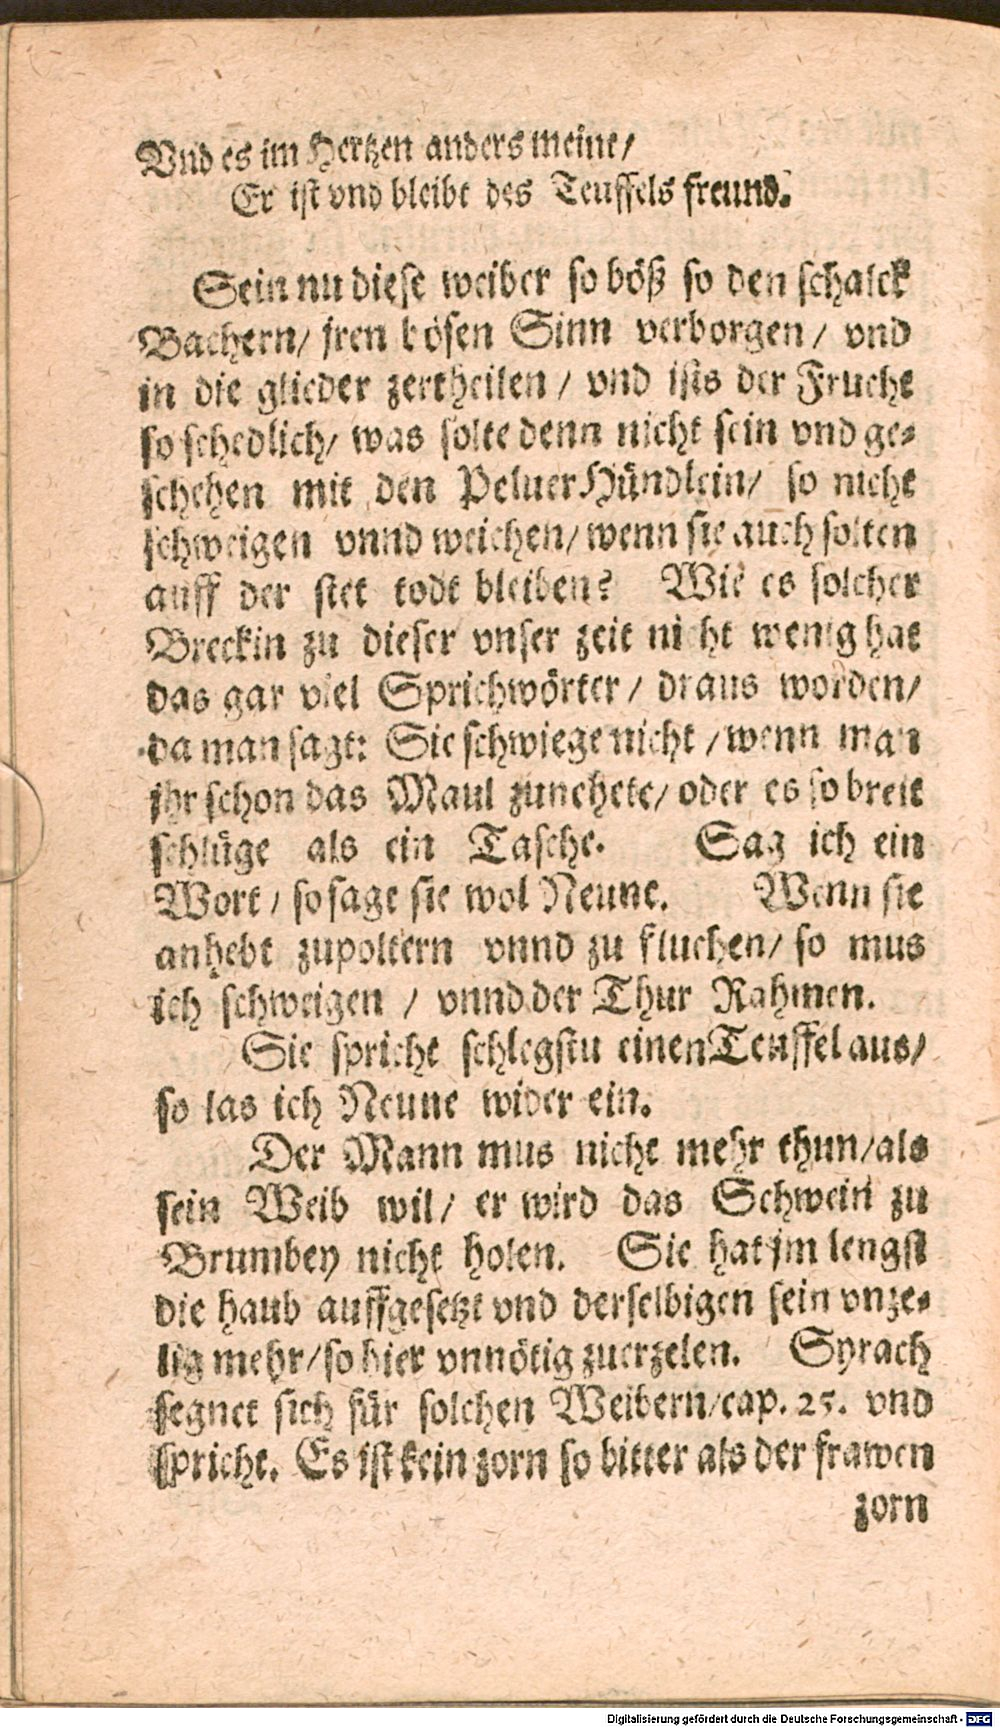 Vnd es im Hertzen anders meint/
Er ist vnd bleibt des Teuffels freund.
Sein nu diese weiber so böß so den schalck
Bachern/ jren bösen Sinn verborgen/ vnd
in die glieder zertheilen/ vnd ists der Frucht
so schedlich/ was solte denn nicht sein vnd ge-
schehen mit den PeluerHündlein/ so nicht
schweigen vnnd weichen/ wenn sie auch solten
auff der stet todt bleiben? Wie es solcher
Breckin zu dieser vnser zeit nicht wenig hat
das gar viel Sprichwörter/ draus worden/
da man sagt: Sie schwiege nicht/ wenn man
jhr schon das Maul zunehete/ oder es so breit
schlüge als ein Tasche. Sag ich ein
Wort/ so sagt sie wol Neune. Wenn sie
anhebt zupoltern vnnd zu fluchen/ so mus
ich schweigen/ vnnd der Thur Rahmen.
Sie spricht schlegstu einen Teuffel aus/
so las ich Neune wider ein.
Der Mann mus nicht mehr thun/ als
sein Weib wil/ er wird das Schwein zu
Brumbey nicht holen. Sie hat jm lengst
die haub auffgesetzt vnd derselbigen sein vnze-
lig mehr/ so hier vnnötig zuerzelen. Syrach
segnet sich für solchen Weibern/ cap. 25. vnd
spricht. Es ist kein zorn so bitter als der frawen
zorn
Digitalisierung gefördert durch die Deutsche Forschungsgemeinschaft - DFG